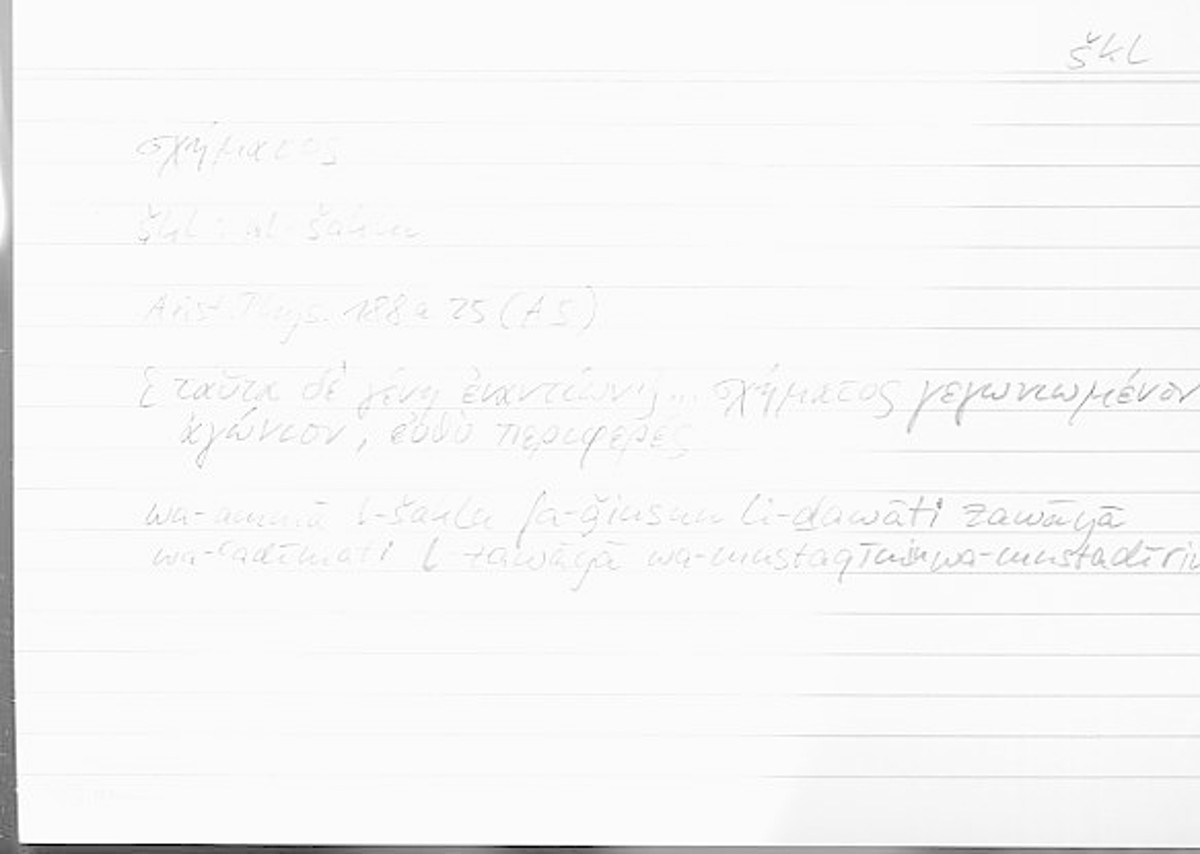 škl
σχήματος
škl : al-šaklu
Arist. Phys. 188a 25 (A 5)
{ταῦτα δὲ γένη ἐναντίων} ... σχήματος γεγωνιωμένον
ἀγώνιον, εὐθὺ περιφερές
wa-ammā l-šaklu fa-ǧinsun li-ḏawāti zawāyā
wa-ʿadīmati l-zawāyā wa-mustaqīmin wa-mustadīrin